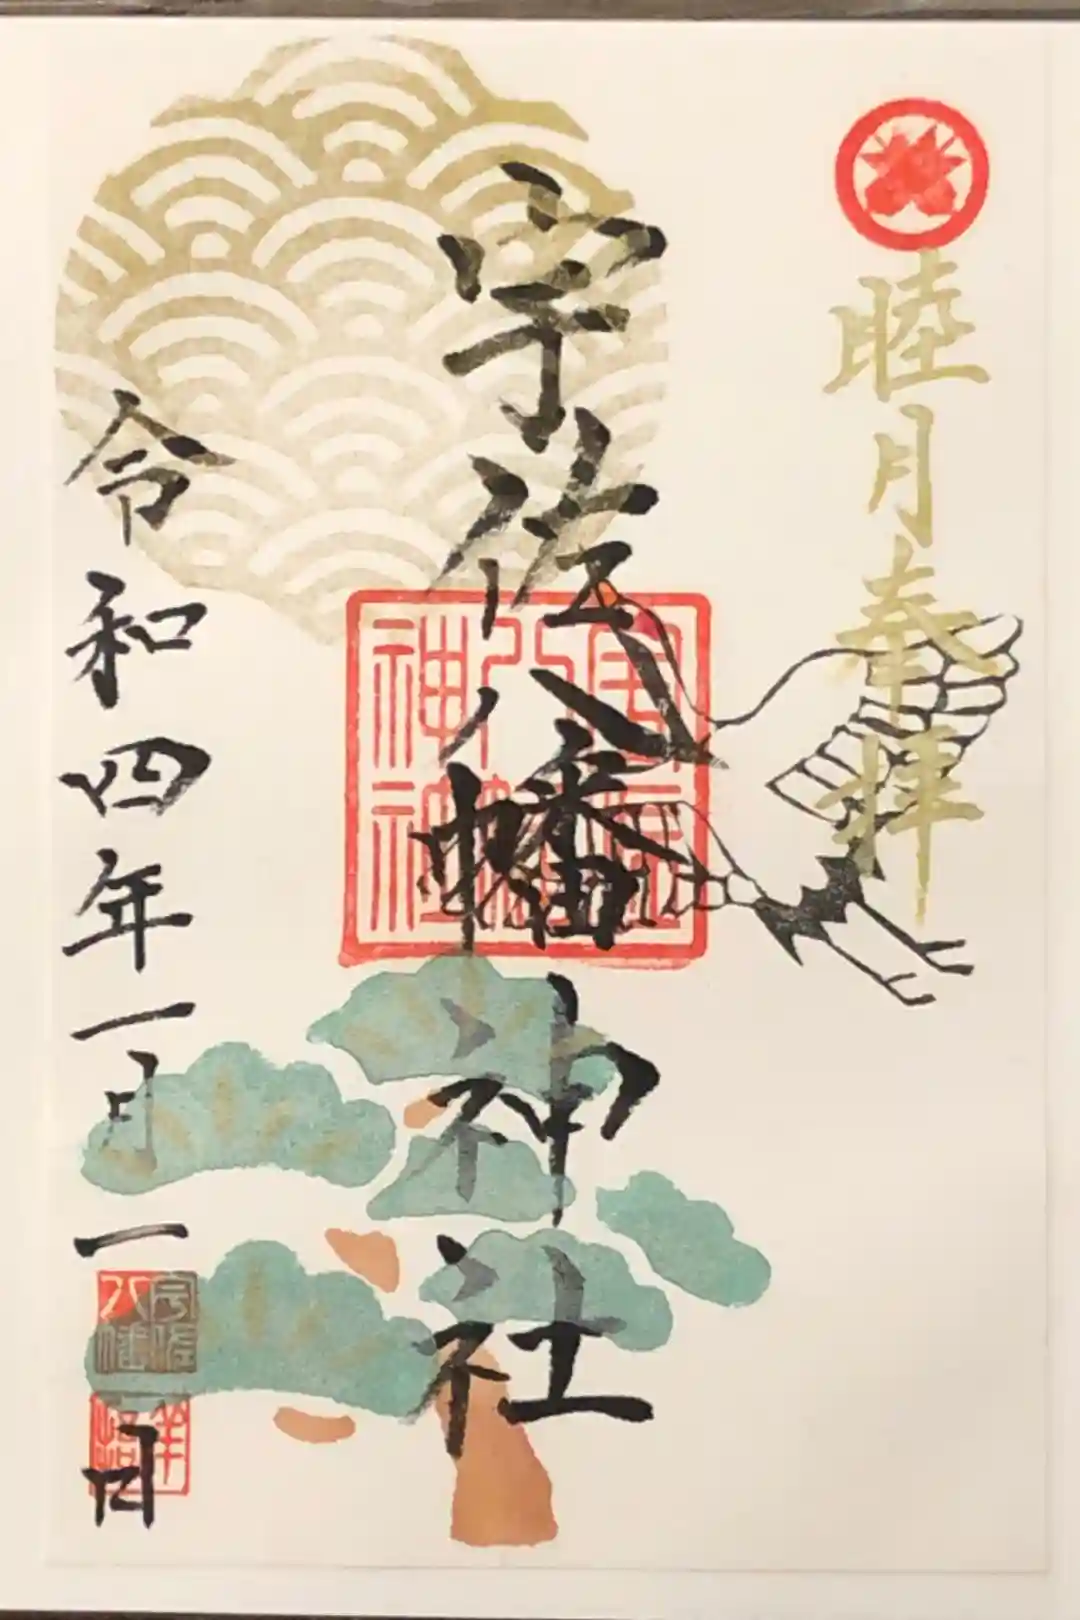 睦月奉拝
宇佐八幡神社
宇佐八幡神社
令和四年一月一日
宇佐
八幡